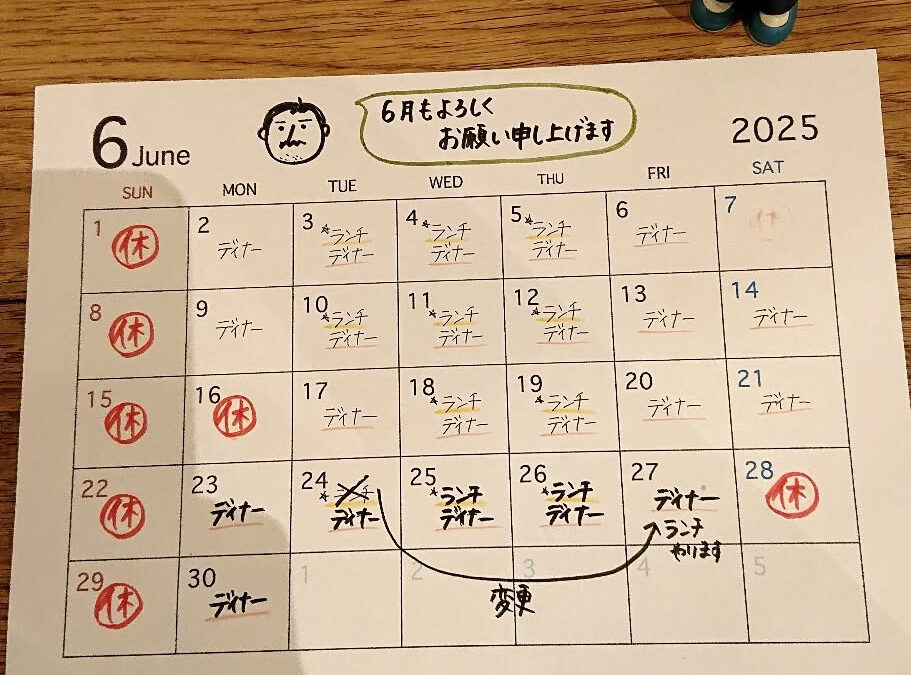 6 June
6月もよろしく
お願い申し上げます
2025
SUN MON TUE WED THU FRI SAT
1 休
2 ディナー
3 *ランチ
ディナー
4 *ランチ
ディナー
5 *ランチ
ディナー
6 ディナー
7 休
8 休
9 ディナー
10 *ランチ
ディナー
11 *ランチ
ディナー
12 *ランチ
ディナー
13 ディナー
14 ディナー
15 休
16 休
17 ディナー
18 *ランチ
ディナー
19 *ランチ
ディナー
20 ディナー
21 ディナー
22 休
23 ディナー
24 *ランチ
ディナー
25 *ランチ
ディナー
26 *ランチ
ディナー
27 ディナー
ランチ
やります
28 休
29 休
30 ディナー
1
2
3
4
5
変更